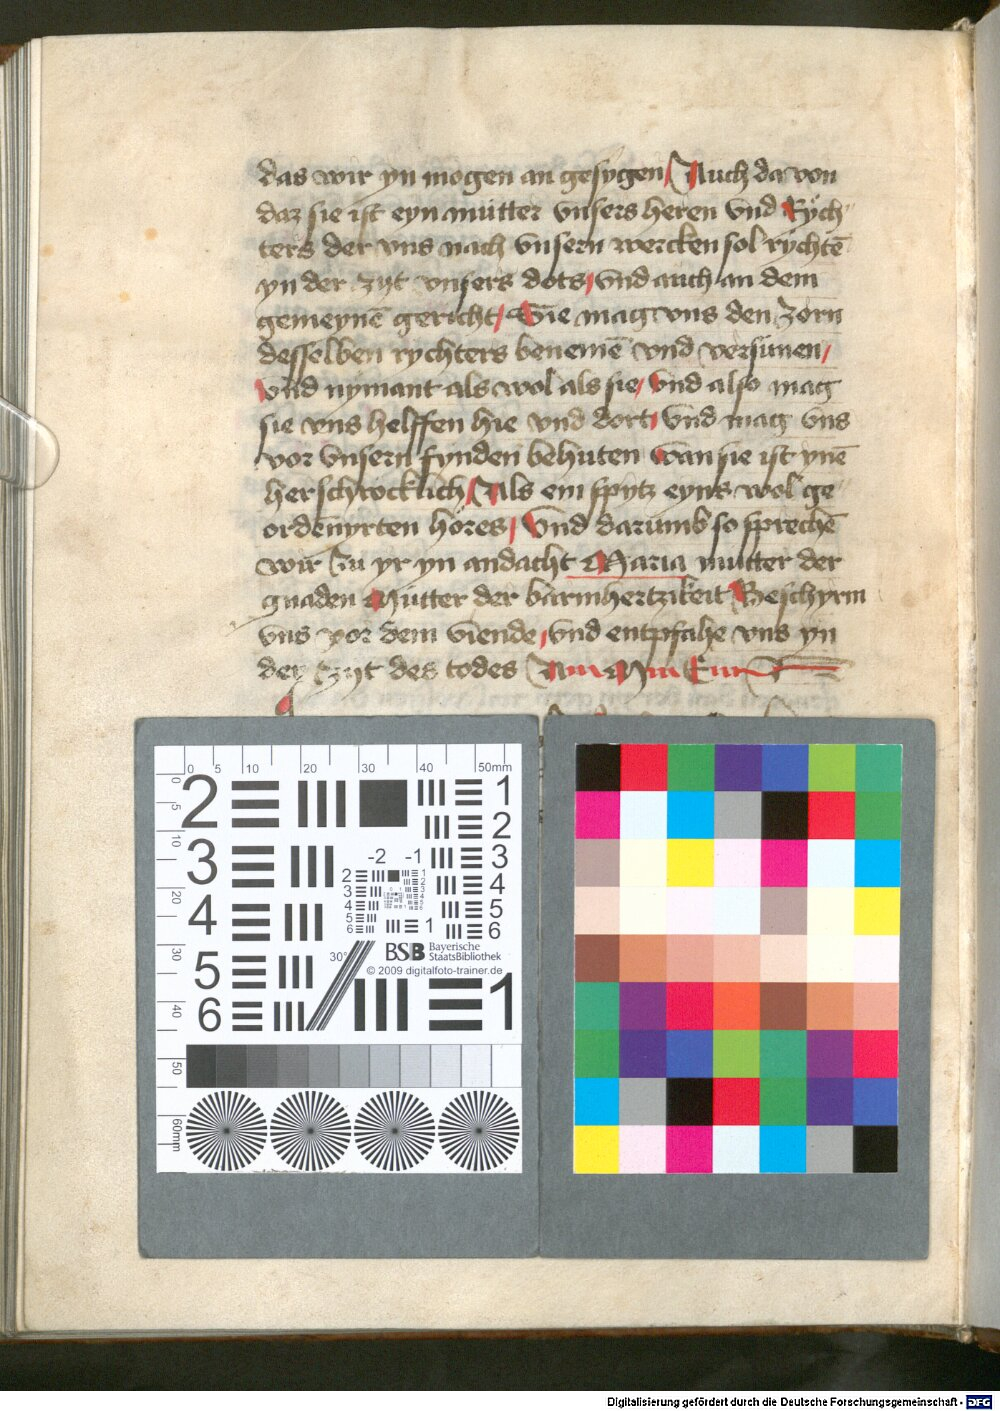 das wir yn mogen an gesygen / Auch da von
daz sie ist eyn mutter vnsers heren vnd Rych
ters der vns nach vnsern wercken sol rychtē
yn der zyt vnsers dots / vnd auch an dem
gemeynē gericht / Sie mag vns den zorn
desselben rychters benemē vnd versunen /
vnd nymant als wol als sie / vnd also mag
sie vns helffen hie vnd dort / vnd mag vns
vor vnsern fynden behuten wan sie ist ynē
herschrocklich / Als ein spytz eyns wol ge
ordenyrten hores / vnd darumb so sprechē
wir zu yr yn andacht Maria mutter der
gnaden Mutter der barmhertzikeit Beschyrm
vns vor dem viende / vnd entpfahe vns yn
der zyt des todes
0 5 10 20 30 40 50mm
0 5 10 20 30 40 50 60mm
2 1
2
3 -2 -1 3
4 4
5
6
5 30°
6 1
BSB Bayerische
StaatsBibliothek
© 2009 digitalfoto-trainer.de
Digitalisierung gefördert durch die Deutsche Forschungsgemeinschaft - DFG